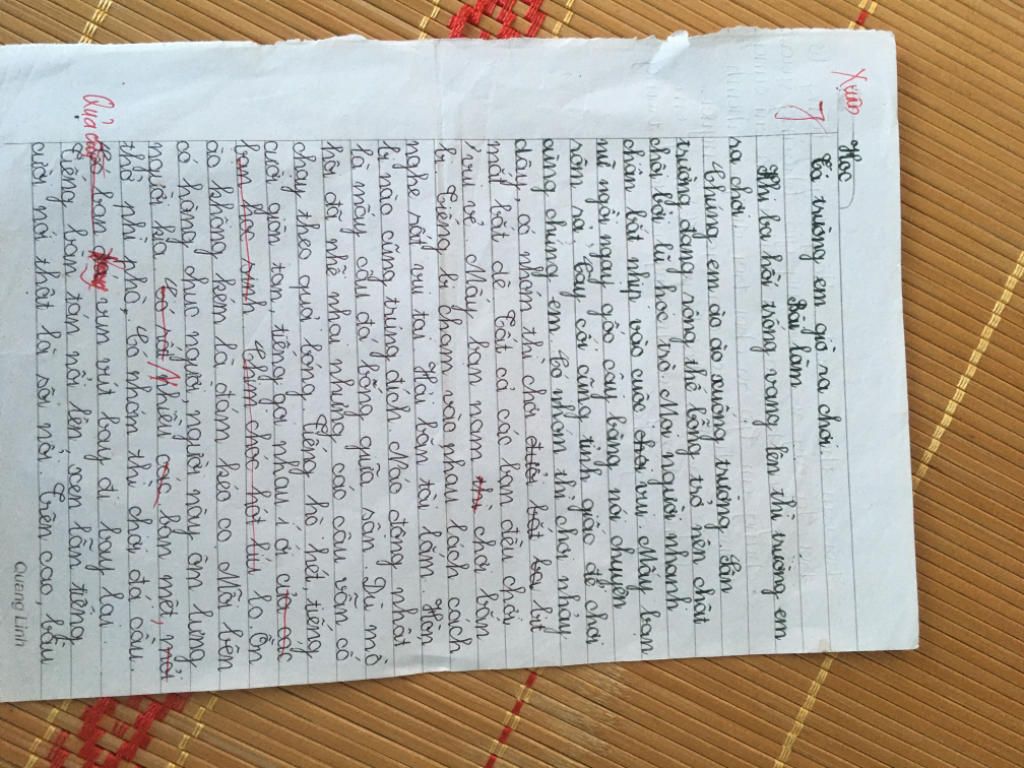 Xuân
7
Học
Tả trường em giờ ra chơi
Bài làm
Khi ba hồi trống vang lên thì trường em
ra chơi.
Chúng em ào ào xuống trường. Sân
trường đang rộng thế bỗng trở nên chật
chội bởi lũ học trò. Mọi người nhanh
chân bắt nhịp vào cuộc chơi vui. Mấy bạn
nữ ngồi ngay gốc cây bàng nói chuyện
rôm rả. Cây cối cũng tỉnh giấc để chơi
cùng chúng em. Có nhóm thì chơi nhảy
dây, có nhóm thì chơi đuổi bắt bạ bịt
mắt bắt dê. Tất cả các bạn đều chơi
vui vẻ. Mấy bạn nam thì chơi bắn
bi. Tiếng bi chạm vào nhau lách cách
nghe rất vui tai. Hải bắn tài lắm. Hòn
bi nào cũng trúng đích. Náo động nhất
là mấy đấu đá bóng giữa sân. Dù mồ
hôi đã nhễ nhại nhưng các cầu vẫn cố
chạy theo quả bóng. Tiếng hò hét, tiếng
cười giòn tan, tiếng gọi nhau í ới của các
bạn học sinh. Chim chóc hót líu lo. Ồn
ào không kém là đám kéo co. Mỗi bên
có hàng chục người, người này ôm lưng
người kia. Có rất nhiều các bạn mệt, nói
thở phì phò. Có nhóm thì chơi đá cầu.
Quả cầu
Có ban đang vun vút bay đi bay lại.
Tiếng bàn tán nổi lên, xen lẫn tiếng
cười nói thật là sôi nổi. Trên cao, bầu
Quang Linh